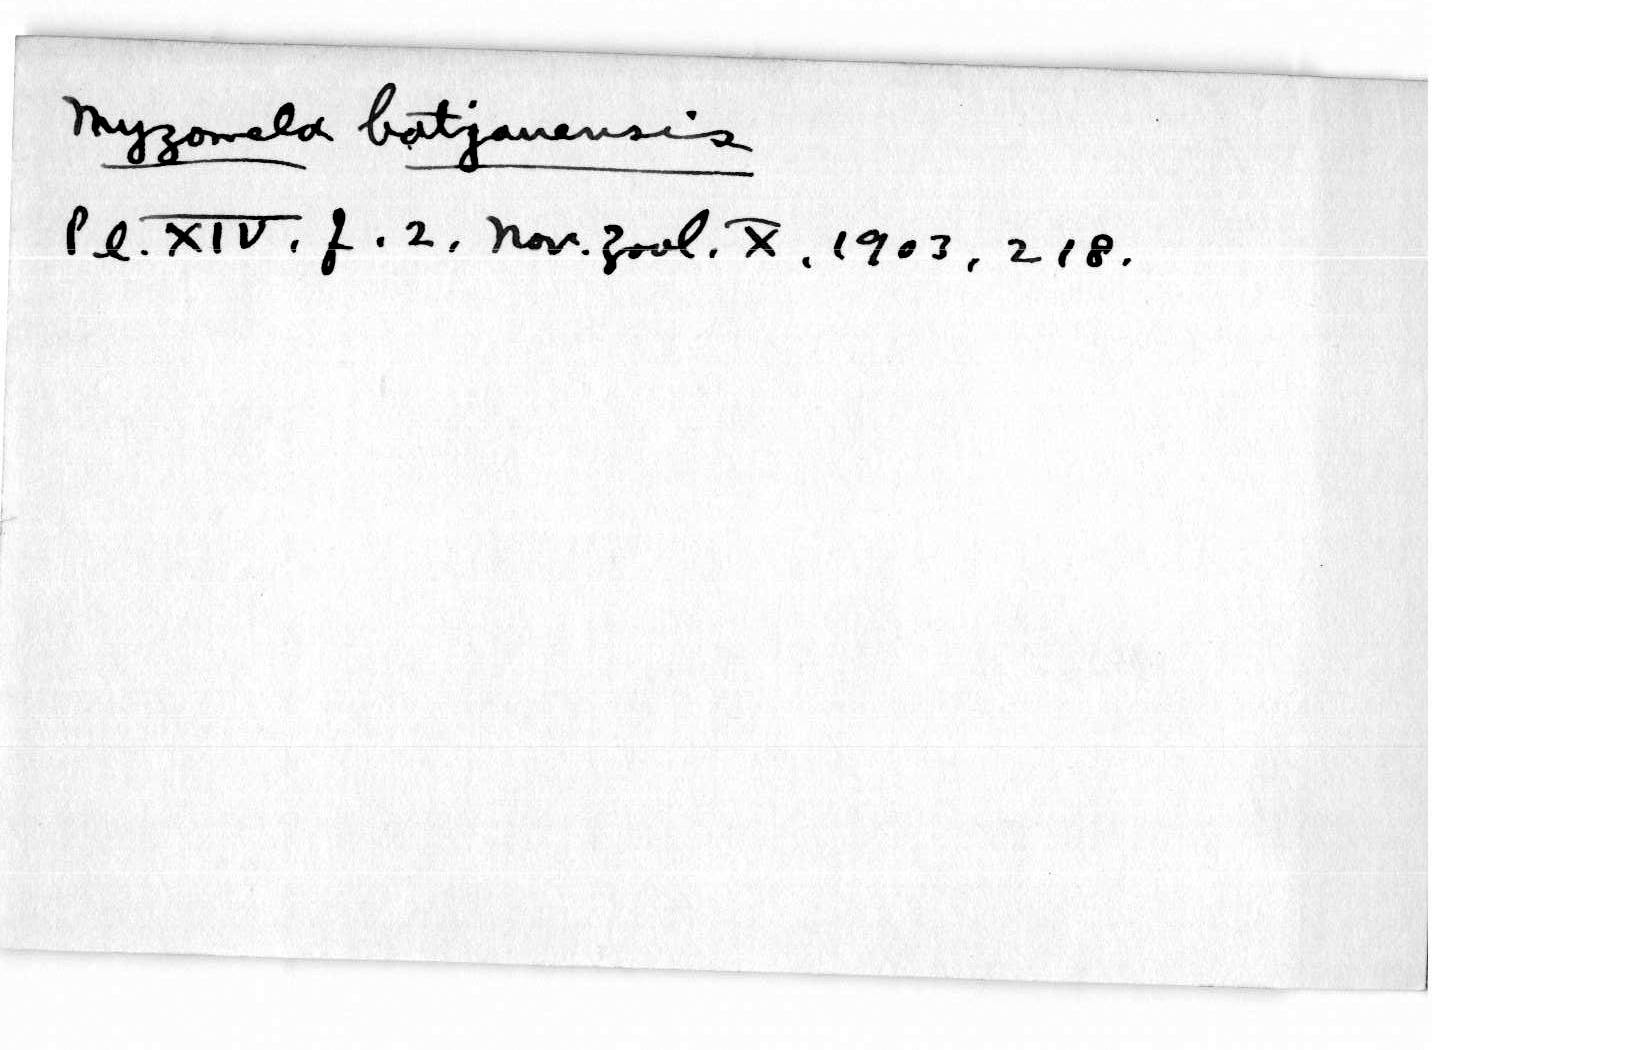 Myzomela batjanensis
Pl. XIV. f. 2. Nov. Zool. X, 1903, 218.